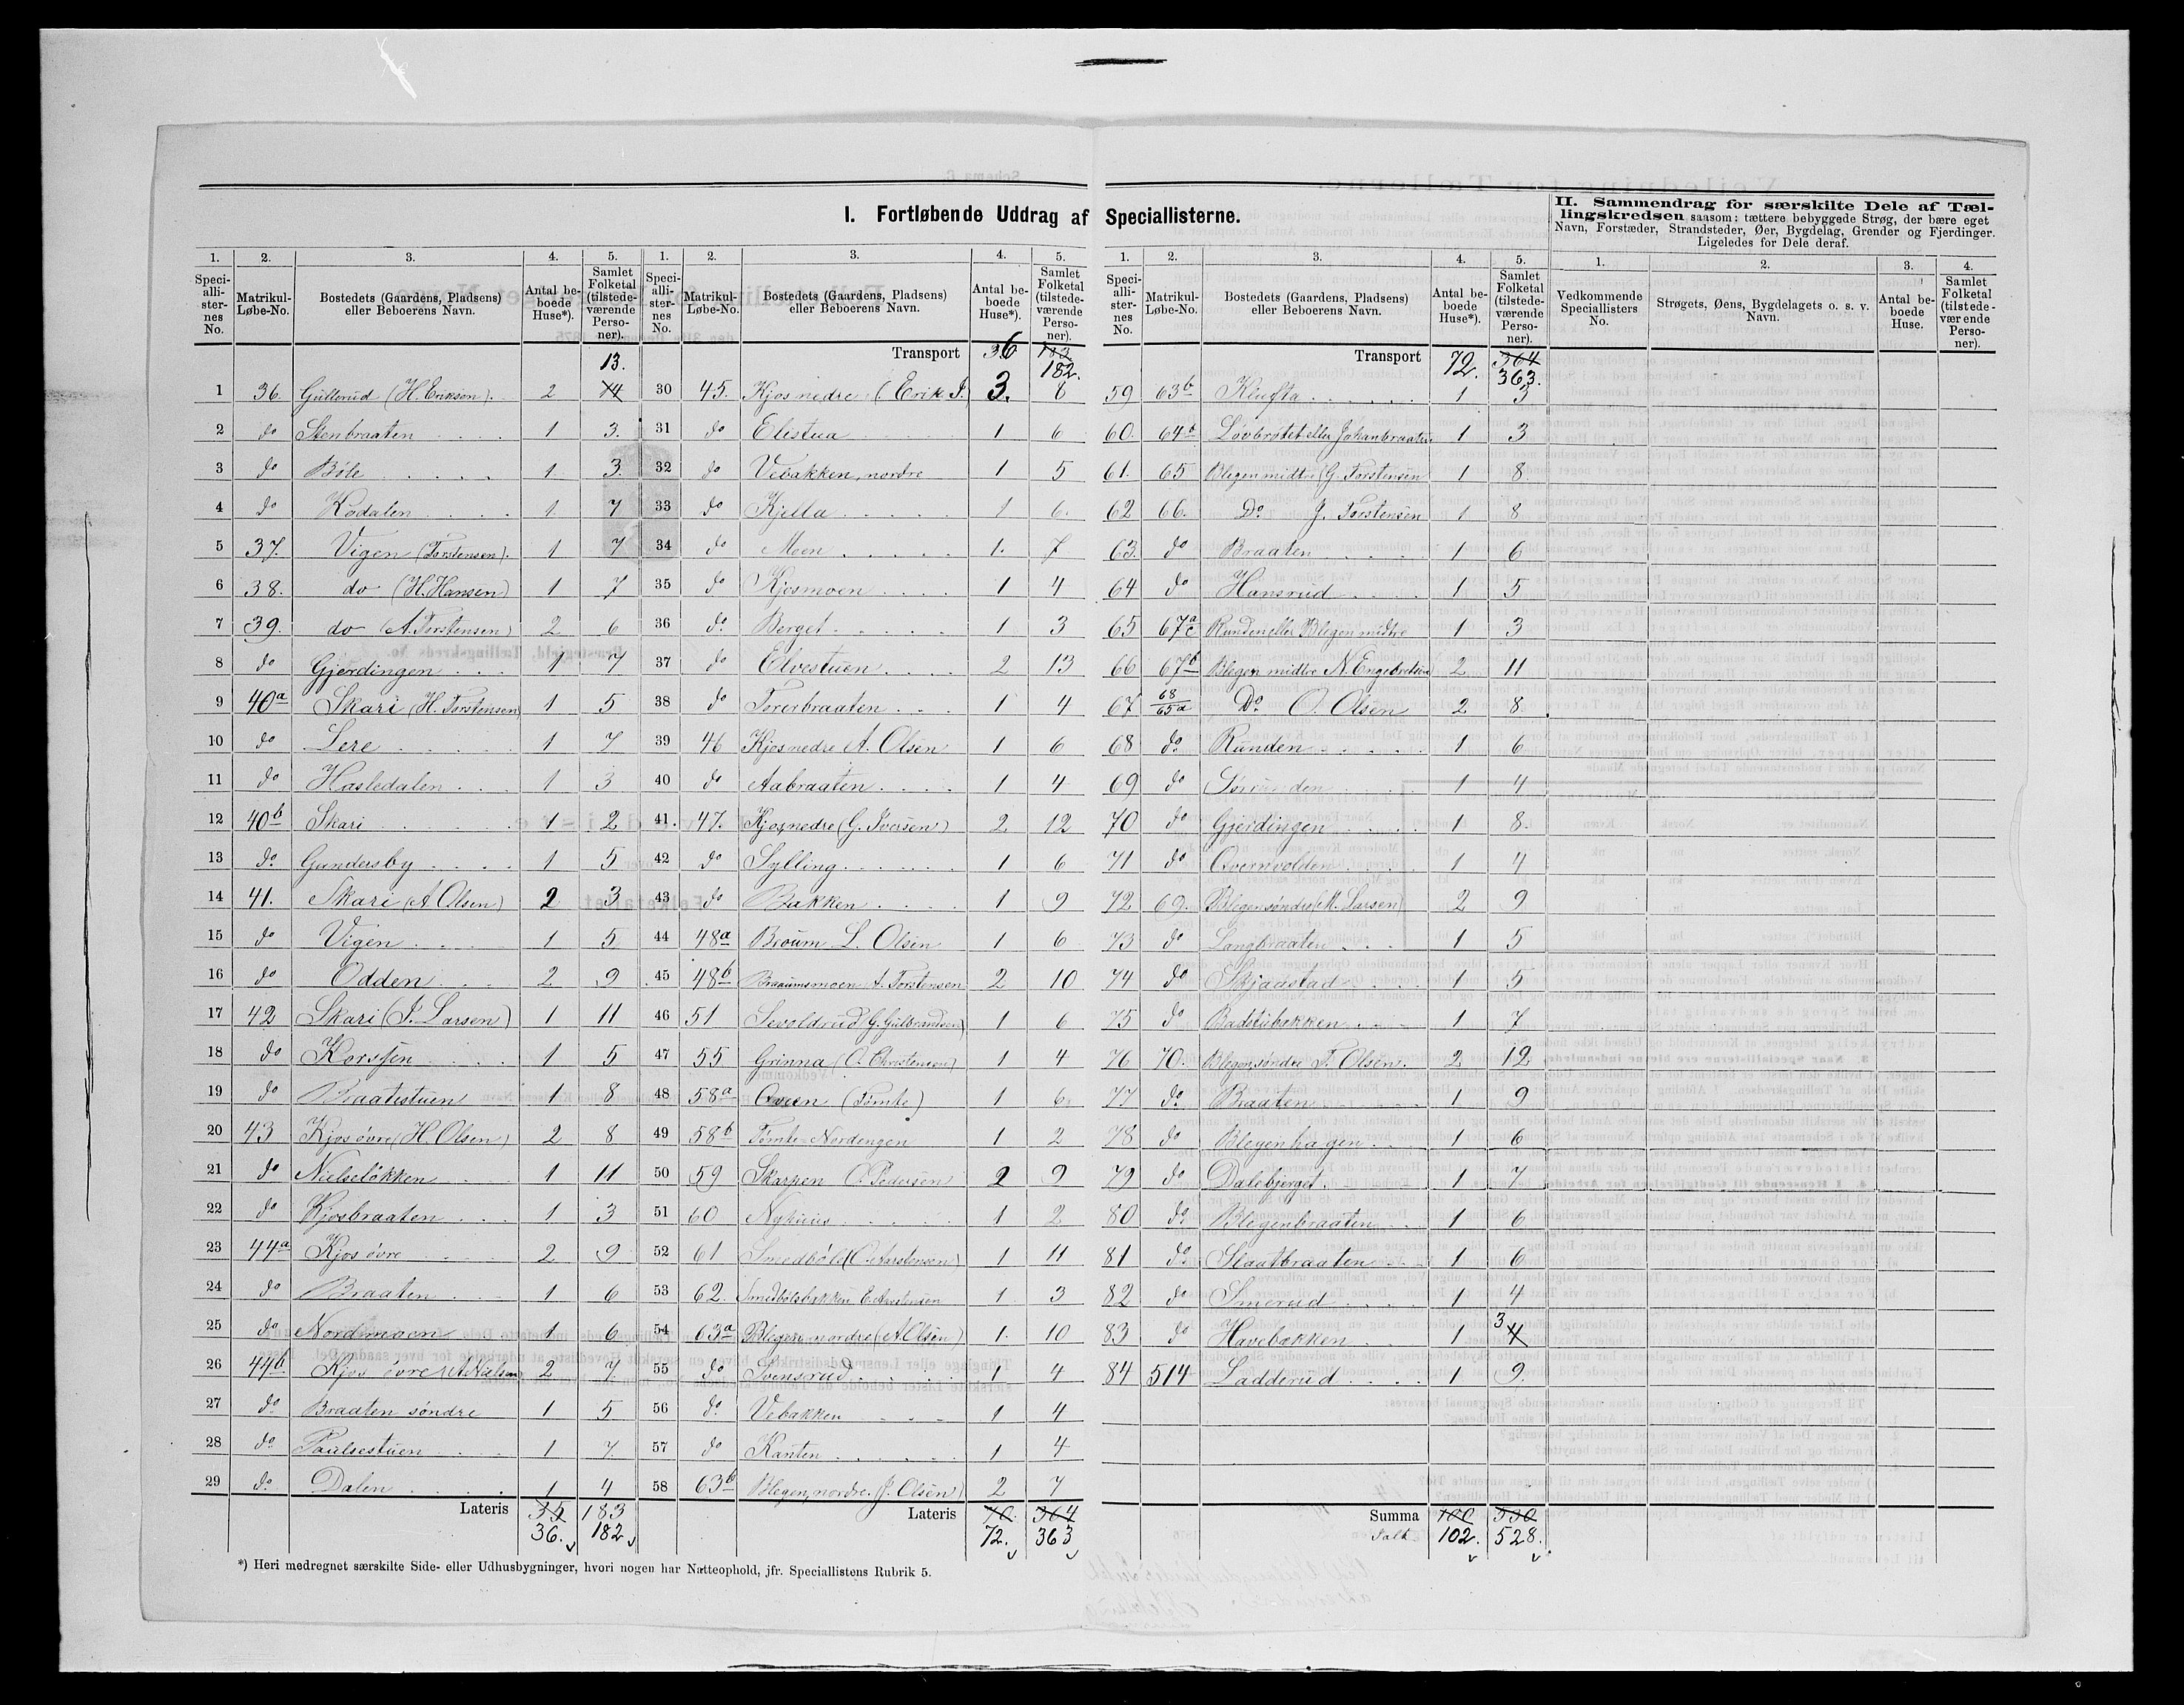 I. Fortløbende Uddrag af Speciallisterne.
II. Sammendrag for særskilte Dele af Tæl-
lingskredsen saasom: tættere bebyggede Strøg, der bære eget
Navn, Forstæder, Strandsteder, Øer, Bygdelag, Grender og Fjerdinger.
Ligeledes for Dele deraf.
1. 2. 3. 4. 5. 1. 2. 3. 4. 5. 1. 2. 3. 4. 5. 1. 2. 3. 4.
Speci-alli-ster-nes No. Matrikul-Løbe-No. Bostedets (Gaardens, Pladsens) eller Beboerens Navn. Antal be-boede Huse*). Samlet Folketal (tilstede-værende Perso-ner).
Speci-alli-ster-nes No. Matrikul-Løbe-No. Bostedets (Gaardens, Pladsens) eller Beboerens Navn. Antal be-boede Huse*). Samlet Folketal (tilstede-værende Perso-ner).
Speci-alli-ster-nes No. Matrikul-Løbe-No. Bostedets (Gaardens, Pladsens) eller Beboerens Navn. Antal be-boede Huse*). Samlet Folketal (tilstede-værende Perso-ner).
Vedkommende Speciallisters No. Strøgets, Øens, Bygdelagets o. s. v. Navn. Antal be-boede Huse. Samlet Folketal (tilstede-vær ende Perso-ner).
13.
1 36. Gullerud (H. Eriksen). 2 14
2 do Stenbraaten 1 3.
3 do Bøle 1 3.
4 do Kødalen 1 7
5 37. Vigen (Torstensen). 1 7
6 38. do (H. Hansen) 1 7
7 39. do (A. Torstensen) 2 6
8 do Gjerdingen 1 7
9 40a Skari (H. Torstensen) 1 5
10 do Lere 1 7
11 do Hasledalen 1 3
12 40b Skari 1 2
13 do Gundersby 1 5
14 41. Skari (A Olsen) 2 3
15 do Vigen 1 5
16 do Odden 2 9
17 42 Skari (J. Larsen) 1 11
18 do 1 5
19 do Braatestuen 1 8
20 43 Kjos øvre (H. Olsen) 2 8
21 do Nielseløkken 1 11
22 do Kjosbraaten 1 3
23 44a Kjos øvre 2 9
24 do Braaten 1 6
25 do Nordmoen 1 6
26 44b Kjos øvre 2 7
27 do Braaten søndre 1 5
28 do Paulsestuen 1 7
29 do Dalen 1 4
Lateris 35 183
36. 182
Transport 36 183
182.
30 45. Kjos nedre (Erik J.) 3. 8
31 do Elistua 1 6
32 do Vebakken, nordre 1 5
33 do Kjella 1 6.
34 do Moen 1. 7
35 do Kjosmoen 1 4
36 do Berget 1 3
37 do Elvestuen 2 13
38 do Torerbraaten 1 4
39 46 Kjos nedre A. Olsen 1 6
40 do Aabraaten 1 4
41. 47. Kjos nedre (G. Iversen) 2 12
42 do Sylling 1 6
43 do Bakken 1 9
44 48a Broum L. Olsen 1 6
45 48b Braaumsmoen A. Torstensen 2 10
46 51 Sevoldrud (G. Gulbrandsen) 1 6
47 55 Grinna (O. Christensen) 1 4
48 58a (Tomte) 1 6
49 58b Tomte-Nordengen 1 2
50 59 Skarpen O. Pedersen 2 9
51 60 Nyhuus 1 2
52 61 Smedbøle (C. Aarstensen) 1 11
53 62. Smedbølsbakken E. Aarstensen 1 3
54 63a Blegen nordre (A Olsen) 1 10
55 do Svensrud 1 4
56 do Vebakken 1 4
57 do Kanten 1 4
58 63b Blegen, nordre. (J. Olsen) 2 7
Lateris 70. 364
72. 363
Transport 72. 364
363.
59 63b Klufta 1 3
60. 64b Løvbrotet eller Johanbraaten 1 3
61. 65 Blegen midtre (G. Torstensen 1 8.
62 66. Do J. Torstensen 1 8
63. do Braaten 1 6
64 do Hansrud 1 5
65 67ac Runden eller Blegen midtre 1 3
66 67b Blegen midtre N. Engebretsen 2 11
67 68/65a Do O. Olsen 2 8
68 do Runden 1 6
69 do 1 4
70 do Gjerdingen 1 8.
71 do Qvernvolden 1 4
72 69. Blegen søndre (M. Larsen) 2 9
73 do Langbraaten 1 5
74 do Skjadstad 1 5
75 do Badstubakken 1 7
76 70. Blegen, søndre T. Olsen. 2 12
77 do Braaten 1 9
78 do Blegenhagen 1 6
79 do Dalebjerget 1 7
80 do Blegenbraaten 1 6
81 do Slaatbraaten 1 6
82 do Smerud 1 4
83 do Havebakken 1 3 4
84 514 Ladderud 1 9.
Summa 100 530
Talt 102. 528.
*) Heri medregnet særskilte Side- eller Udhusbygninger, hvori nogen har Natteophold, jfr. Speciallistens Rubrik 5.